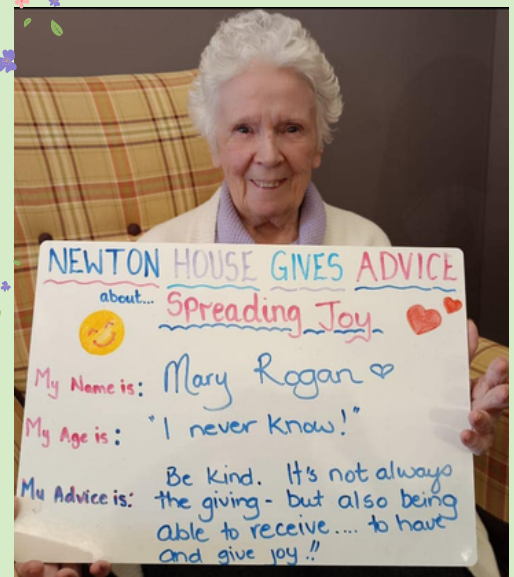 NEWTON HOUSE GIVES ADVICE
about... Spreading Joy
My Name is: Mary Rogan
My Age is: "I never know!"
Be kind. It's not always
My Advice is: the giving - but also being
able to receive.... to have
and give joy!!